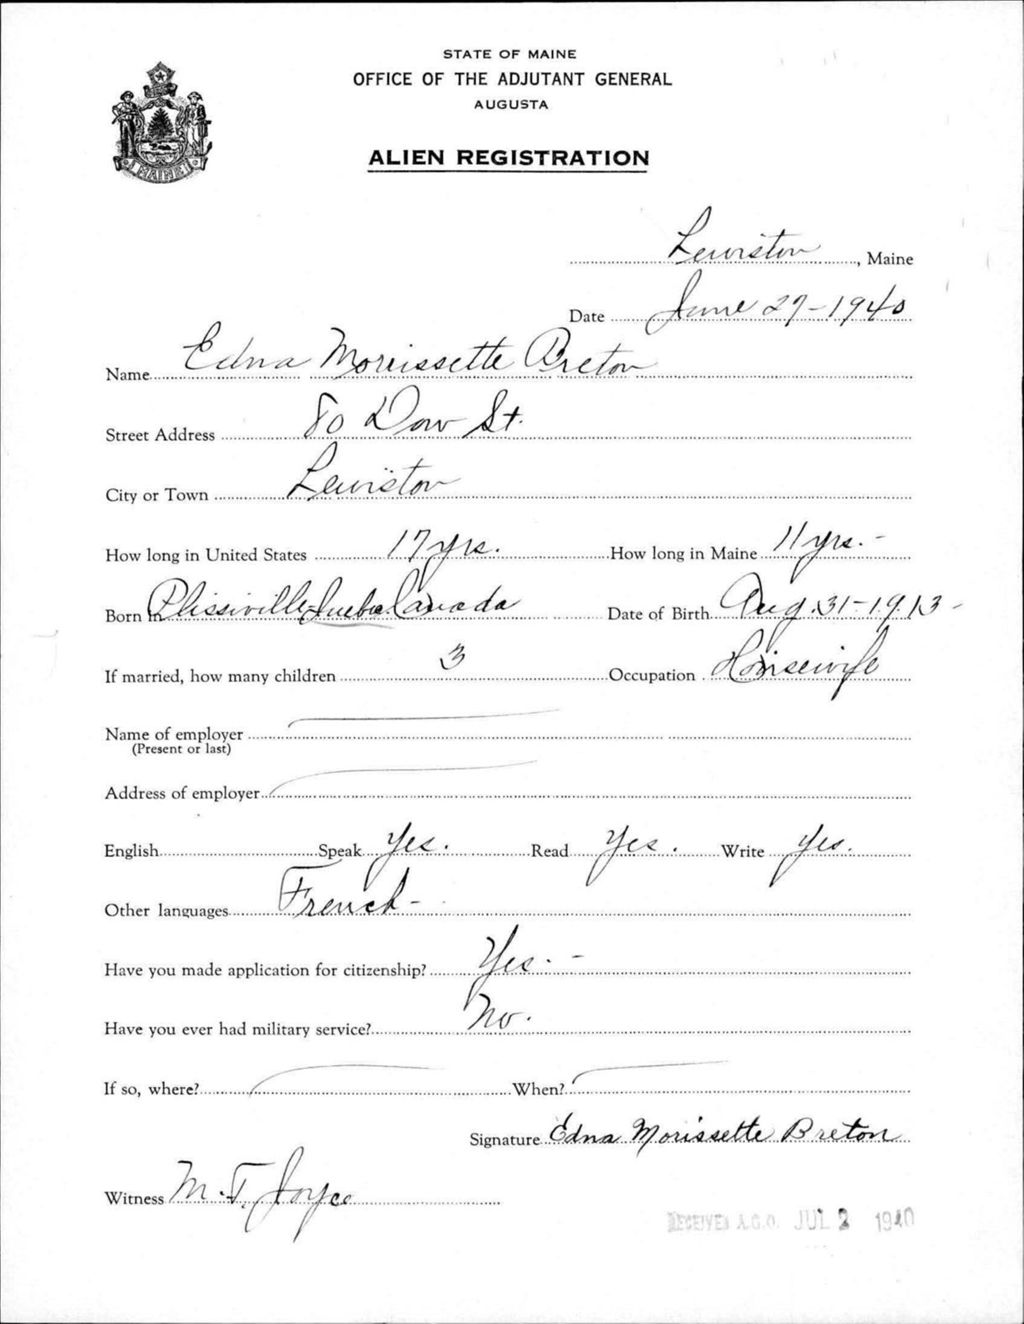 STATE OF MAINE
OFFICE OF THE ADJUTANT GENERAL
AUGUSTA
ALIEN REGISTRATION
MAINE
Lewiston, Maine
Date June 27-1940
Name Edna Morrissette Breton
Street Address 80 Dow St.
City or Town Lewiston
How long in United States 17 yrs. How long in Maine 11 yrs. -
Born in Plissiville Quebec Canada Date of Birth Aug. 31-1913-
If married, how many children 3 Occupation Housewife
Name of employer
(Present or last)
Address of employer
English Speak Yes. Read Yes. Write Yes.
Other languages French -
Have you made application for citizenship? Yes. -
Have you ever had military service? No.
If so, where? When?
Signature Edna Morissette Breton
Witness M. T. Joyce
RECEIVED A.G.O. JUL 2 1940